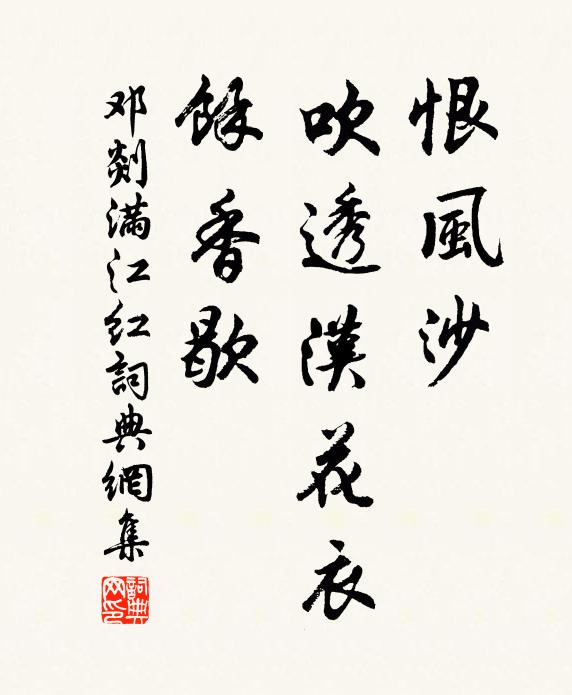 恨風沙
吹透漢花衣
餘香歇
邓剡滿江紅詞典網集
詞典網印